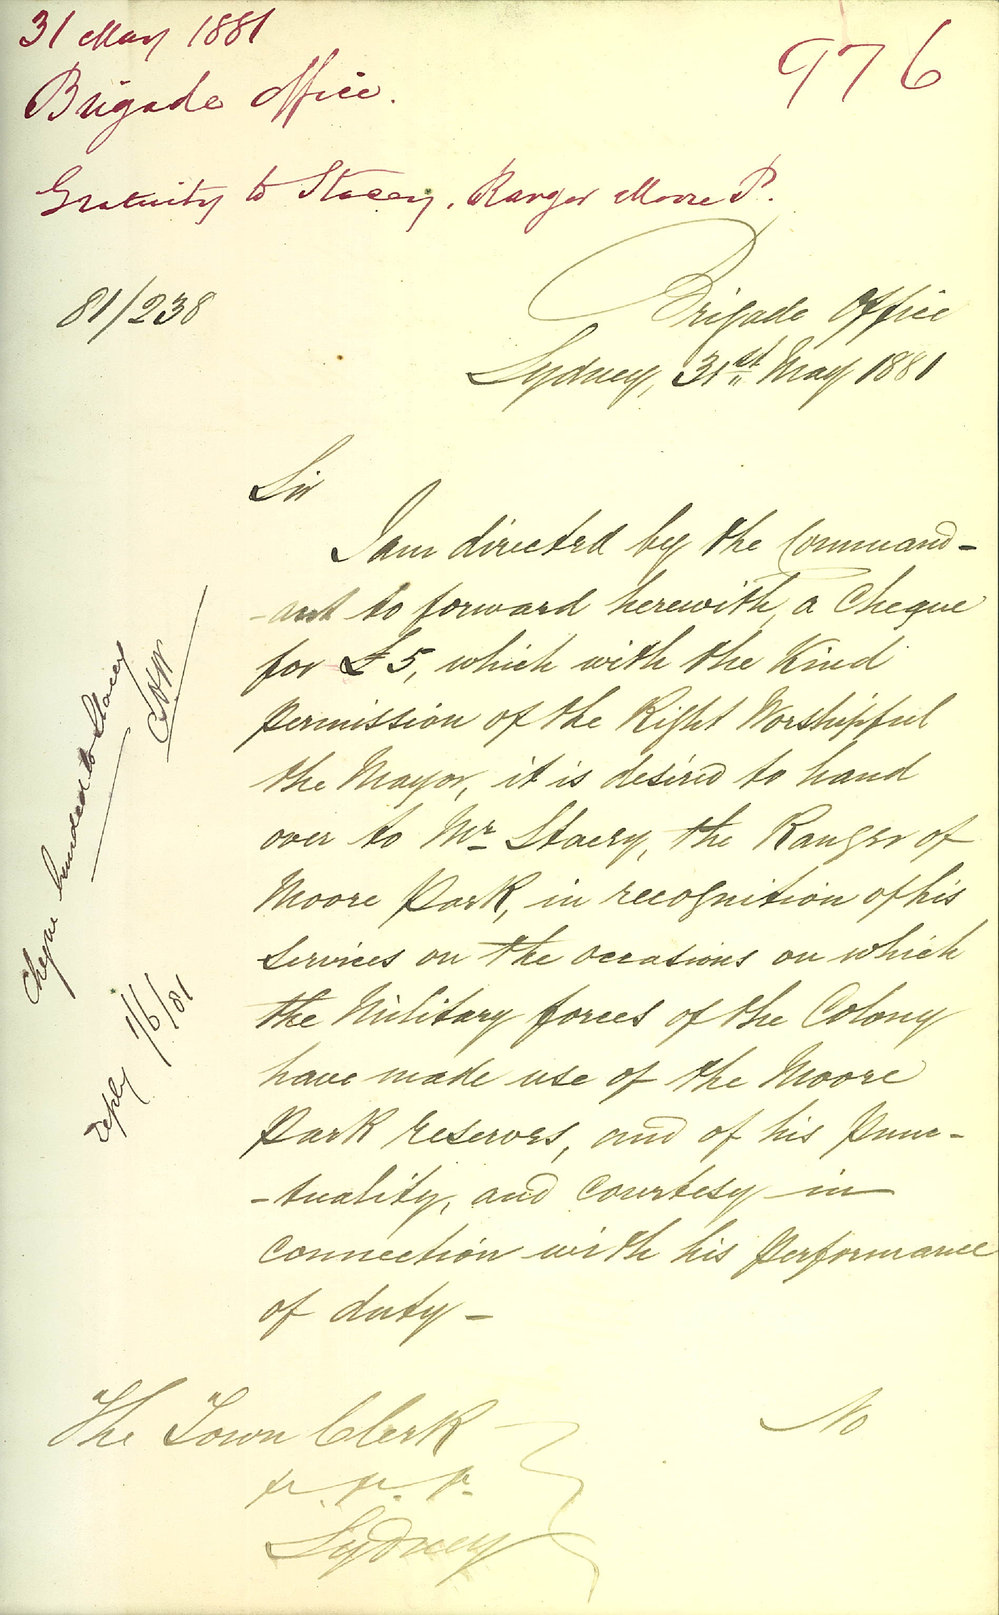 31 May 1881
976
Brigade Office.
Gratuity to Stacey, Ranger Moore P.
81/238
Brigade Office
Sydney, 31st May 1881
Sir
I am directed by the Command-
-ant to forward herewith, a Cheque
for £5, which with the Kind
permission of the Right Worshipful
the Mayor, it is desired to hand
over to Mr Stacey, the Ranger of
Moore Park, in recognition of his
services on the occasions on which
the Military forces of the Colony
have made use of the Moore
Park reserves, and of his Punc-
-tuality, and Courtesy in
connection with his performance
of duty -
Cheque handed to Stacey
reply 1/6/81
The Town Clerk
&c. &c. &c.
Sydney
No